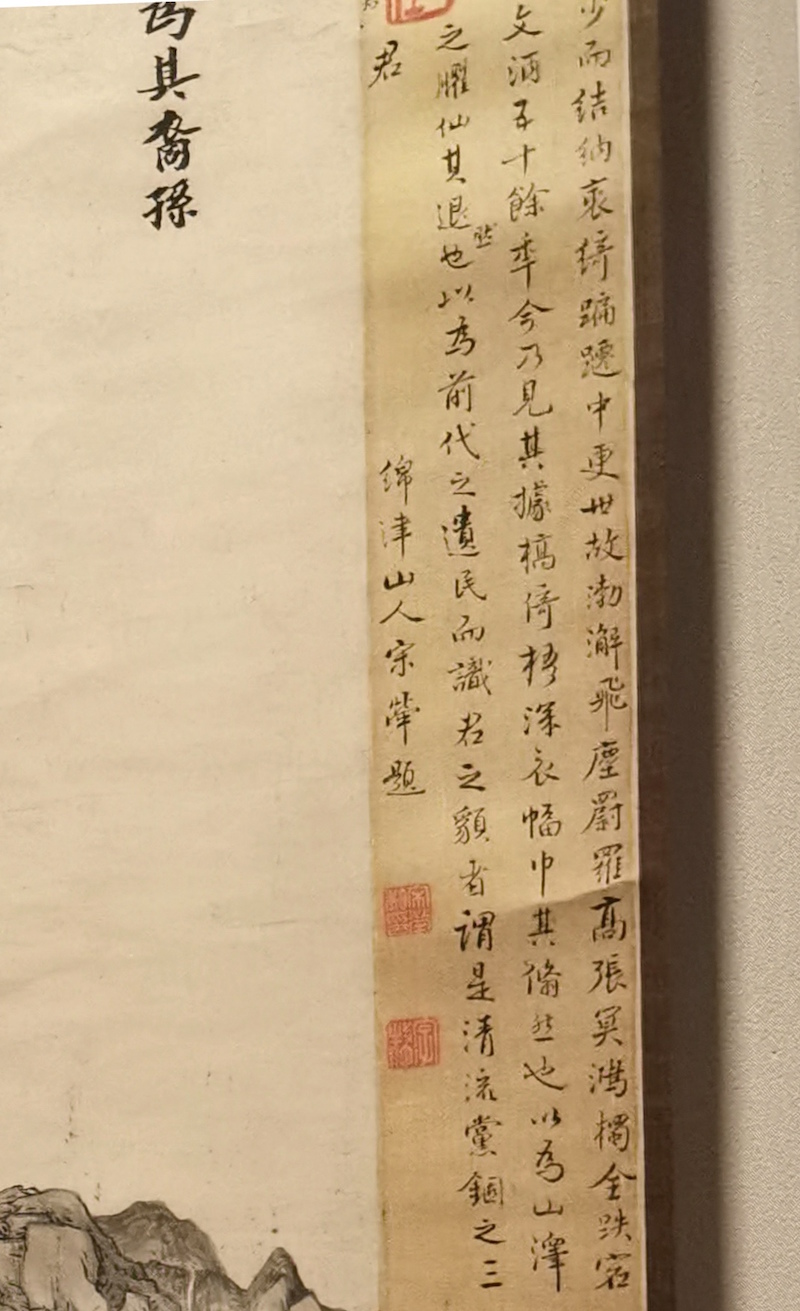 少而結納裘綺蹁躚中更世故渤澥飛塵罻羅高張冥鴻獨全跌宕
文酒五十餘年今乃見其據槁倚梧深衣幅巾其翛然也以為山澤
之臞仙其退然也以為前代之遺民而識君之貌者謂是清流黨錮之三
君
綿津山人宋犖題
爲其裔孫